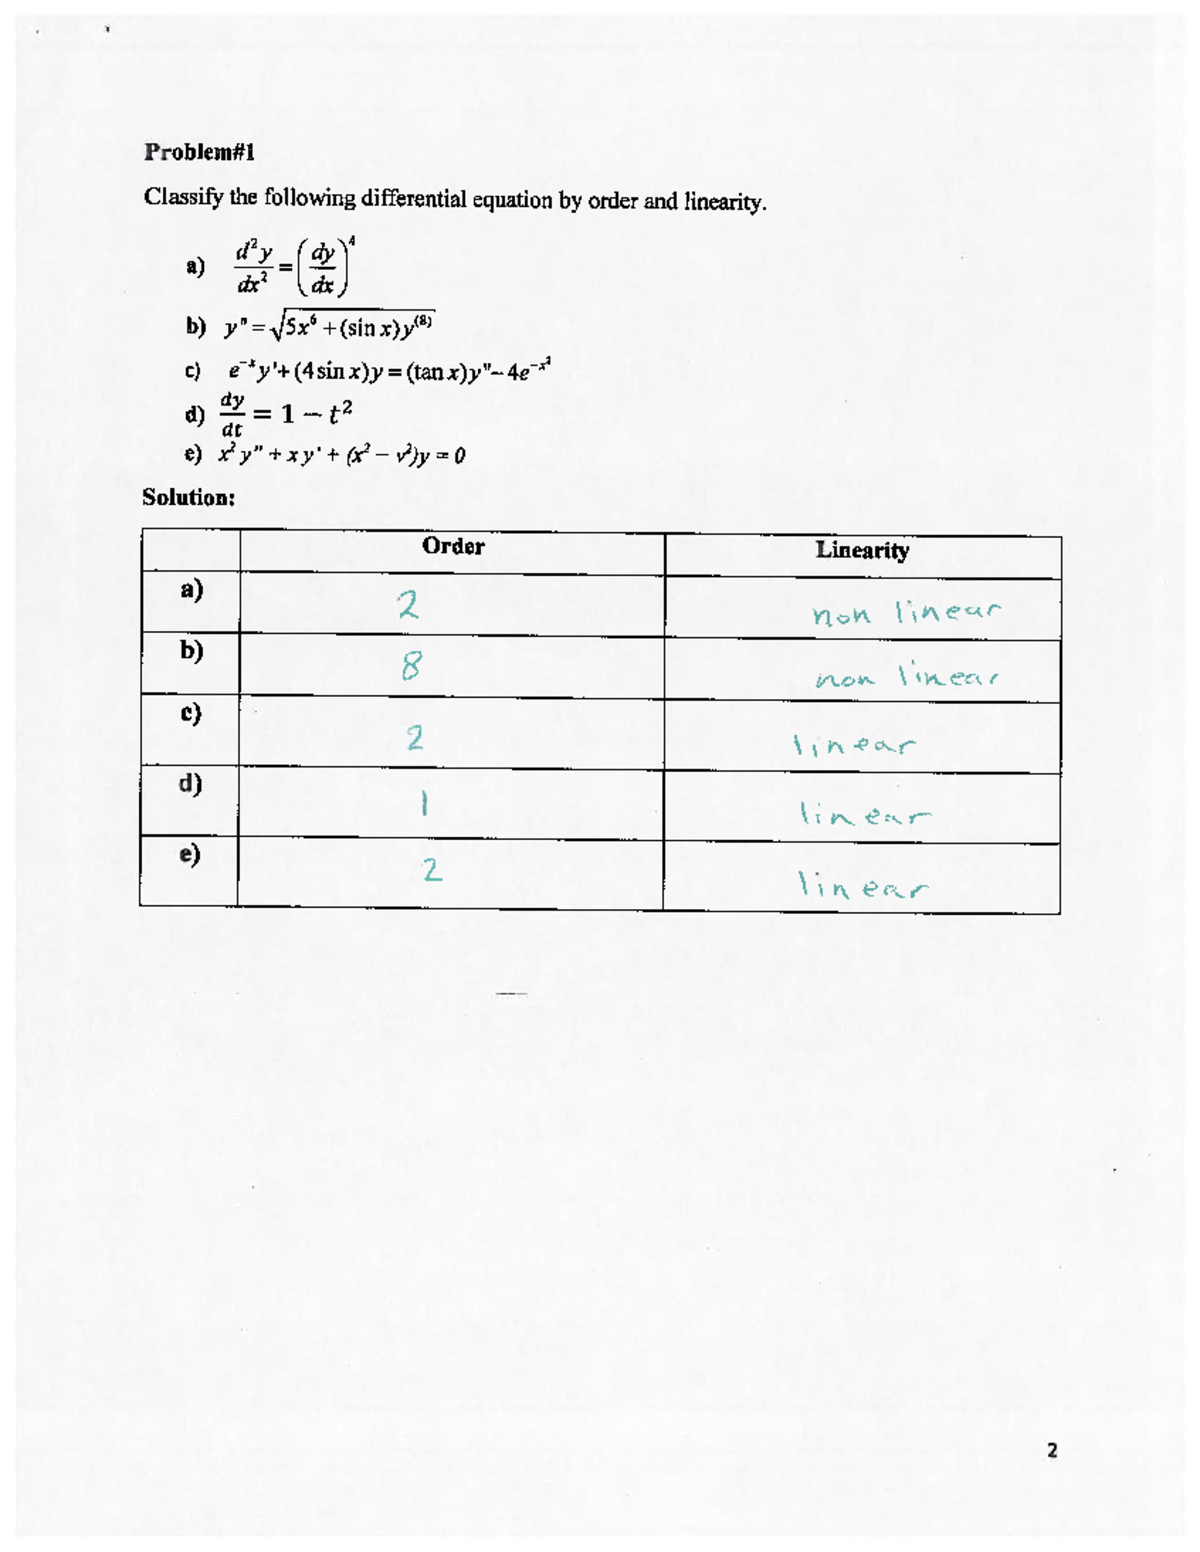 Problem#1
Classify the following differential equation by order and linearity.
a) d²y/dx² = (dy/dx)⁴
b) y" = √(5x⁶ + (sin x)y⁽⁸⁾)
c) e⁻ˣy'+ (4 sin x)y = (tan x)y"– 4e^(-x²)
d) dy/dt = 1 − t²
e) x² y" + x y' + (x² – v²)y = 0
Solution:
Order Linearity
a) 2 non linear
b) 8 non linear
c) 2 linear
d) 1 linear
e) 2 linear
2